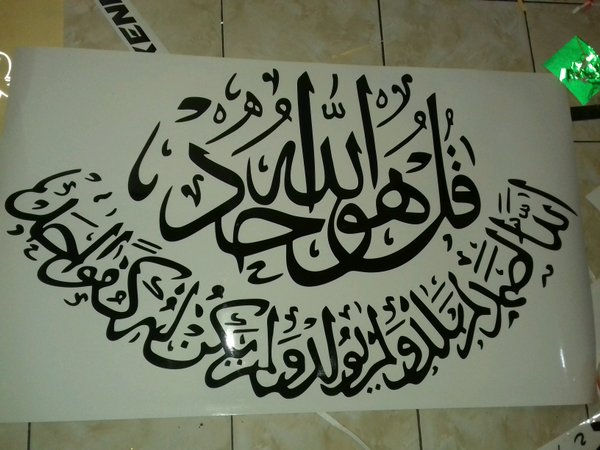 قل هو الله أحد
الله الصمد لم يلد ولم يولد ولم يكن له كفوا أحد
KEN